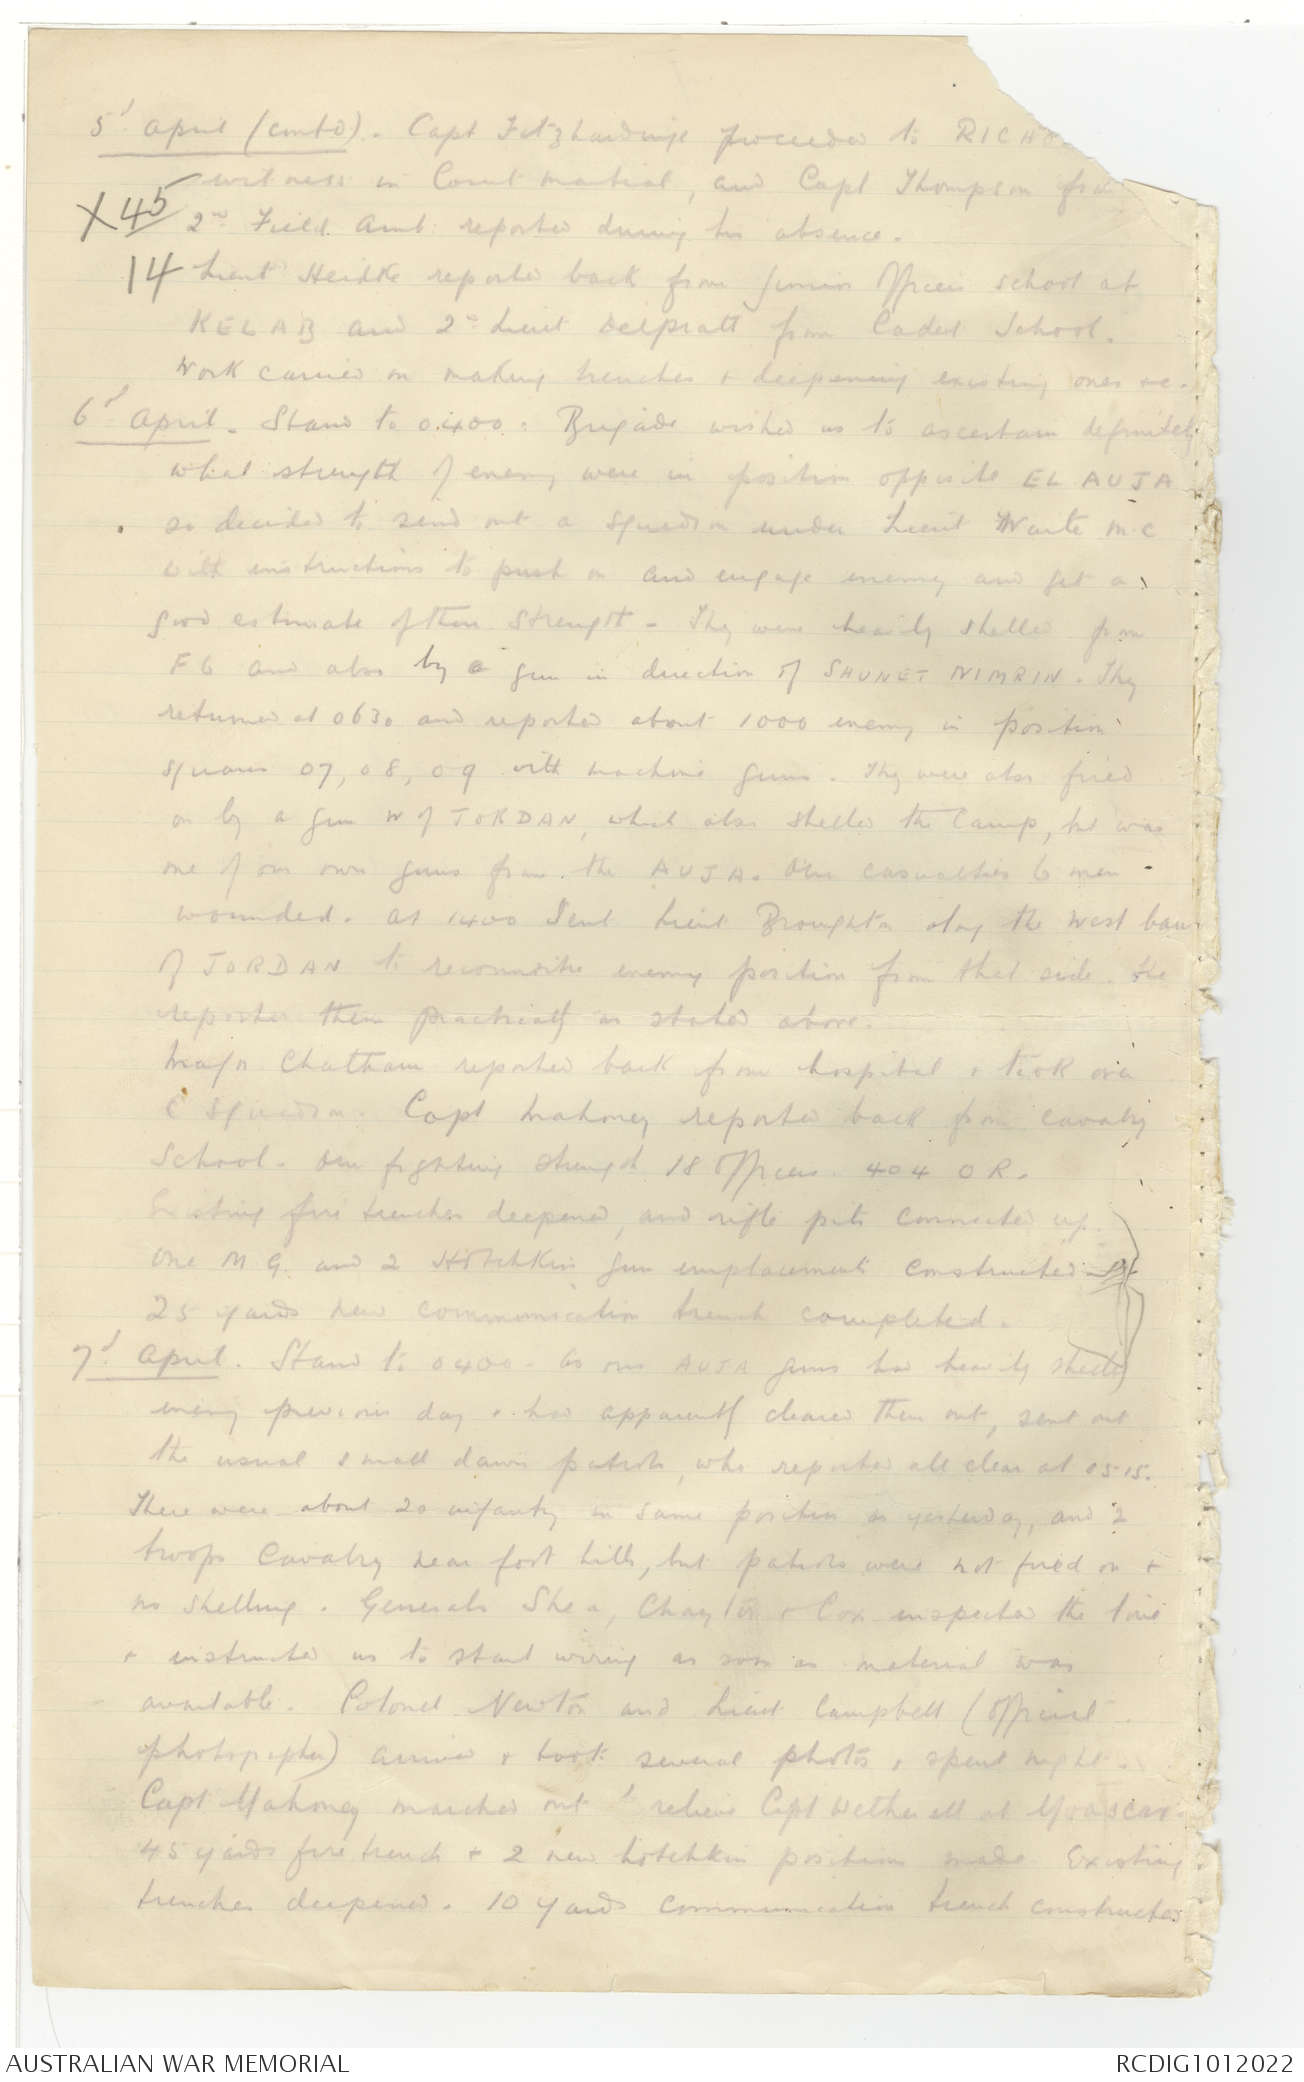 5' April (contd). Capt Fitzhardinge proceeded to RICHO
witness in Court Martial, and Capt Thompson from
X 45
2nd Field Amb: reported during his absence.
14 Lieut Heidke reported back from Junior Officers school at
KELAB and 2nd Lieut Delpratt from Cadet School.
Work carried on making trenches & deepening existing ones etc.
6' April. Stand to 0400. Brigade wished us to ascertain definitely
what strength of enemy were in position opposite EL AUJA
so decided to send out a squadron under Lieut Waite M.C
with instructions to push on and engage enemy and get a
good estimate of their strength - They were heavily shelled from
F6 and also by a gun in direction of SHUNET NIMRIN. They
returned at 0630 and reported about 1000 enemy in position
squares 07, 08, 09 with machine guns. They were also fired
on by a gun W of JORDAN, which also shelled the Camp, he was
one of our own guns from the AUJA. Our casualties 6 men
wounded. At 1400 Sent Lieut Broughton along the West bank
of JORDAN to reconnoitre enemy position from that side. He
reported them practically as stated above.
Major Chatham reported back from hospital & took over
C Squadron. Capt Mahoney reported back from Cavalry
School. Our fighting strength 18 Officers 404 OR.
Existing fire trenches deepened, and rifle pits connected up.
One M G. and 2 Hotchkiss gun emplacements constructed
25 yards new communication trench completed.
7' April. Stand to 0400 - As our AUJA guns had heavily shelled
enemy previous day & had apparently cleared them out, sent out
the usual small dawn patrols, who reported all clear at 0515.
There were about 20 infantry in same position as yesterday, and 2
troops Cavalry near foot hills, but patrols were not fired on &
no shelling. Generals Shea, Chaytor & Cox inspected the line
& instructed us to start wiring as soon as material was
available. Colonel Newton and Lieut Campbell (Official
photographer) arrived & took several photos & spent night.
Capt Mahoney marched out to relieve Capt Wetherell at Moascar.
45 yards fire trench & 2 new hotchkiss positions made. Existing
trenches deepened. 10 yards communication trench constructed
AUSTRALIAN WAR MEMORIAL
RCDIG1012022